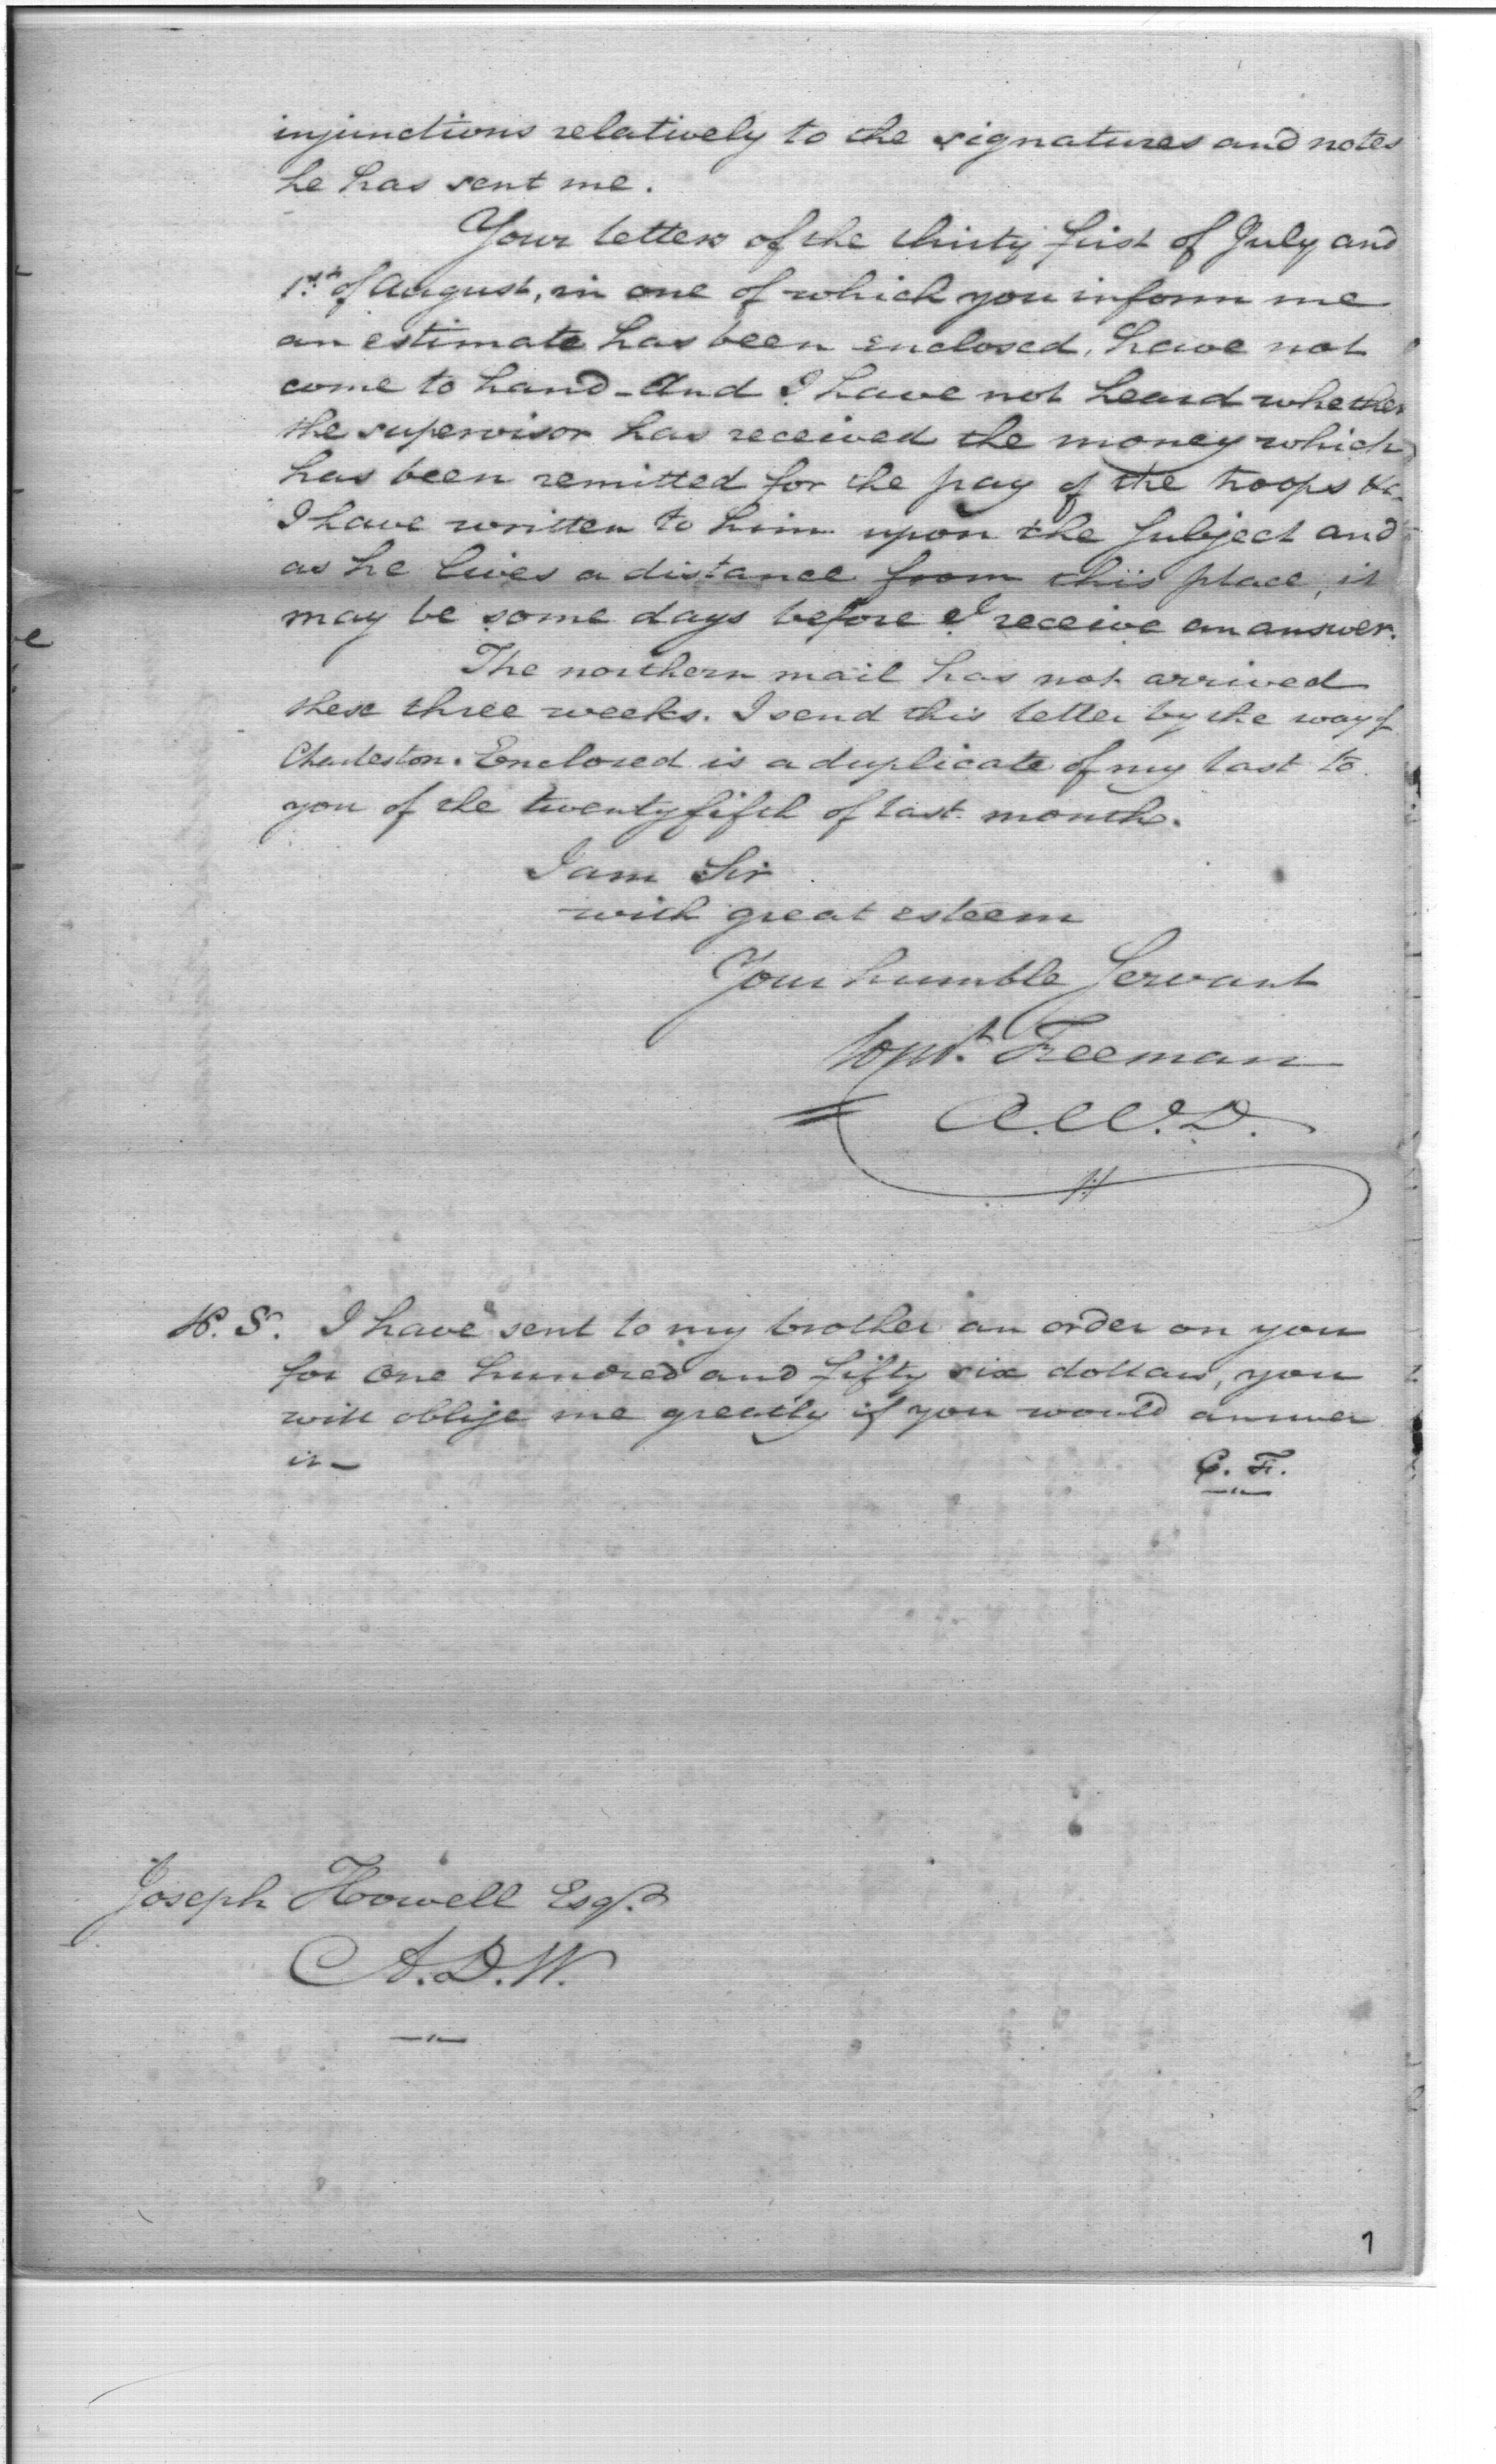 injunctions relatively to the signatures and notes
he has sent me.
Your letters of the thirty first of July and
1st. of August, in one of which you inform me
an estimate has been enclosed, have not
come to hand - And I have not heard whether
the supervisor has received the money which
has been remitted for the pay of the troops &c.
I have written to him upon the Subject and
as he lives a distance from this place, it
may be some days before I receive an answer.
The northern mail has not arrived
these three weeks. I send this letter by the way of
Charleston. Enclosed is a duplicate of my last to
you of the twenty fifth of last month.
I am Sir
with great esteem
Your humble Servant
Freeman
A.W.D.
P. S. I have sent to my brother an order on you
for One hundred and fifty six dollars, you
will oblige me greatly if you would answer
it -
C. F.
Joseph Howell Esqr.
A.D.W.
7